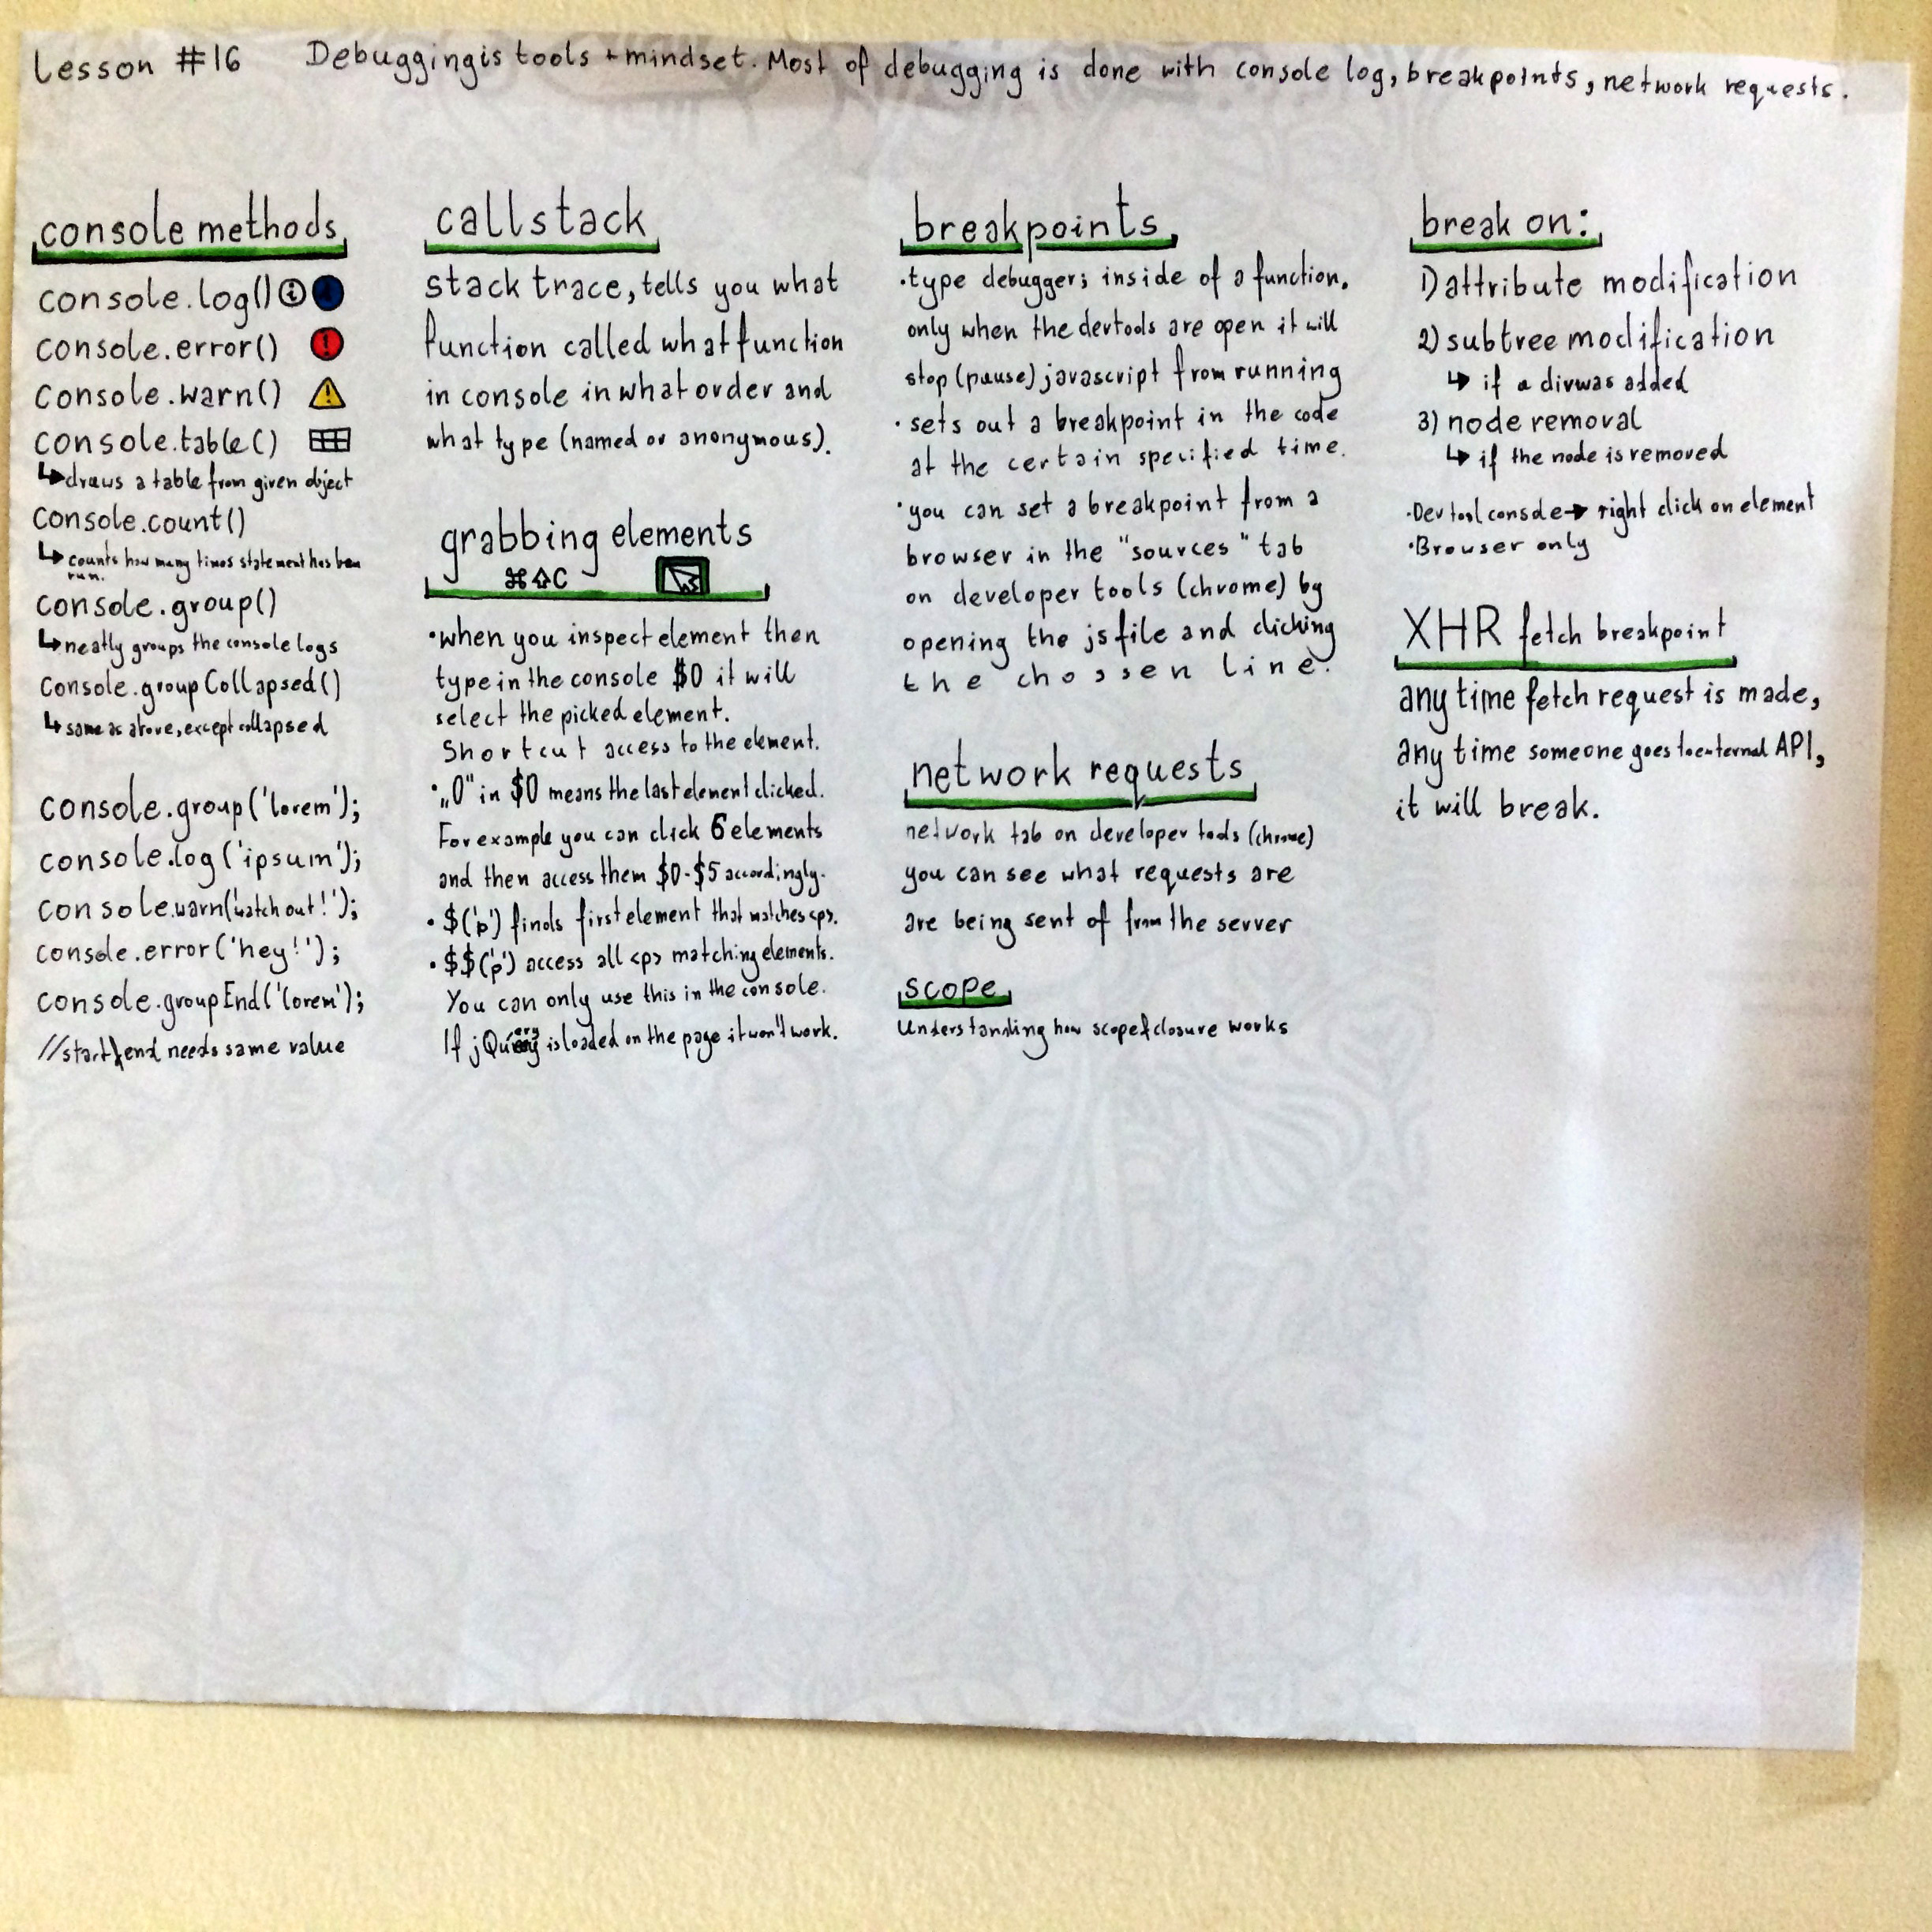 Lesson #16 Debugging is tools + mindset. Most of debugging is done with console log, breakpoints, network requests.
console methods
console.log() i
console.error() !
console.warn() !
console.table()
↳ draws a table from given object
console.count()
↳ counts how many times statement has been
run.
console.group()
↳ neatly groups the console logs
console.groupCollapsed()
↳ same as above, except collapsed
console.group('lorem');
console.log('ipsum');
console.warn('watch out!');
console.error('hey!');
console.groupEnd('lorem');
//start&end needs same value
callstack
stack trace, tells you what
function called what function
in console in what order and
what type (named or anonymous).
grabbing elements
⌘⇧C
•when you inspect element then
type in the console $0 it will
select the picked element.
Shortcut access to the element.
•„0" in $0 means the last element clicked.
For example you can click 6 elements
and then access them $0-$5 accordingly.
• $('p') finds first element that matches <p>.
• $$('p') access all <p> matching elements.
You can only use this in the console.
If jQuery is loaded on the page it won't work.
breakpoints
•type debugger; inside of a function.
only when the devtools are open it will
stop (pause) javascript from running
• sets out a breakpoint in the code
at the certain specified time.
•you can set a breakpoint from a
browser in the "sources" tab
on developer tools (chrome) by
opening the js file and clicking
the chossen line.
network requests
network tab on developer tools (chrome)
you can see what requests are
are being sent of from the server
scope
Understanding how scope&closure works
break on:
1) attribute modification
2) subtree modification
↳ if a div was added
3) node removal
↳ if the node is removed
•Dev tool console → right click on element
•Browser only
XHR fetch breakpoint
any time fetch request is made,
any time someone goes to external API,
it will break.